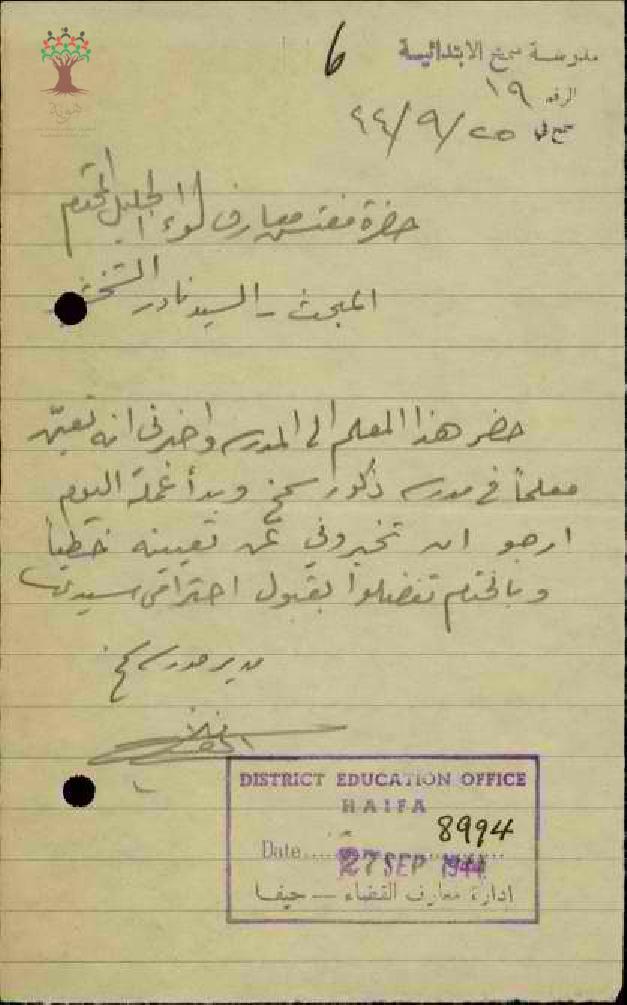 6
مدرسة سمخ الابتدائية
الرقم ١٩
سمخ في ٢٥/٩/٤٤
حضرة مفتش معارف لواء الجليل المحترم
المبحث - السيد نادر
حضر هذا المعلم الى المدرسه واخبرني انه تعين
معلماً في مدرسه ذكور سمخ وبدأ عمله اليوم
ارجو ان تخبروني عن تعيينه خطياً
وبالختام تفضلوا بقبول احترامي سيدي
مدير مدرسه سمخ
DISTRICT EDUCATION OFFICE
HAIFA
8994
Date 27 SEP 1944
ادارة معارف القضاء — حيفا
هوية